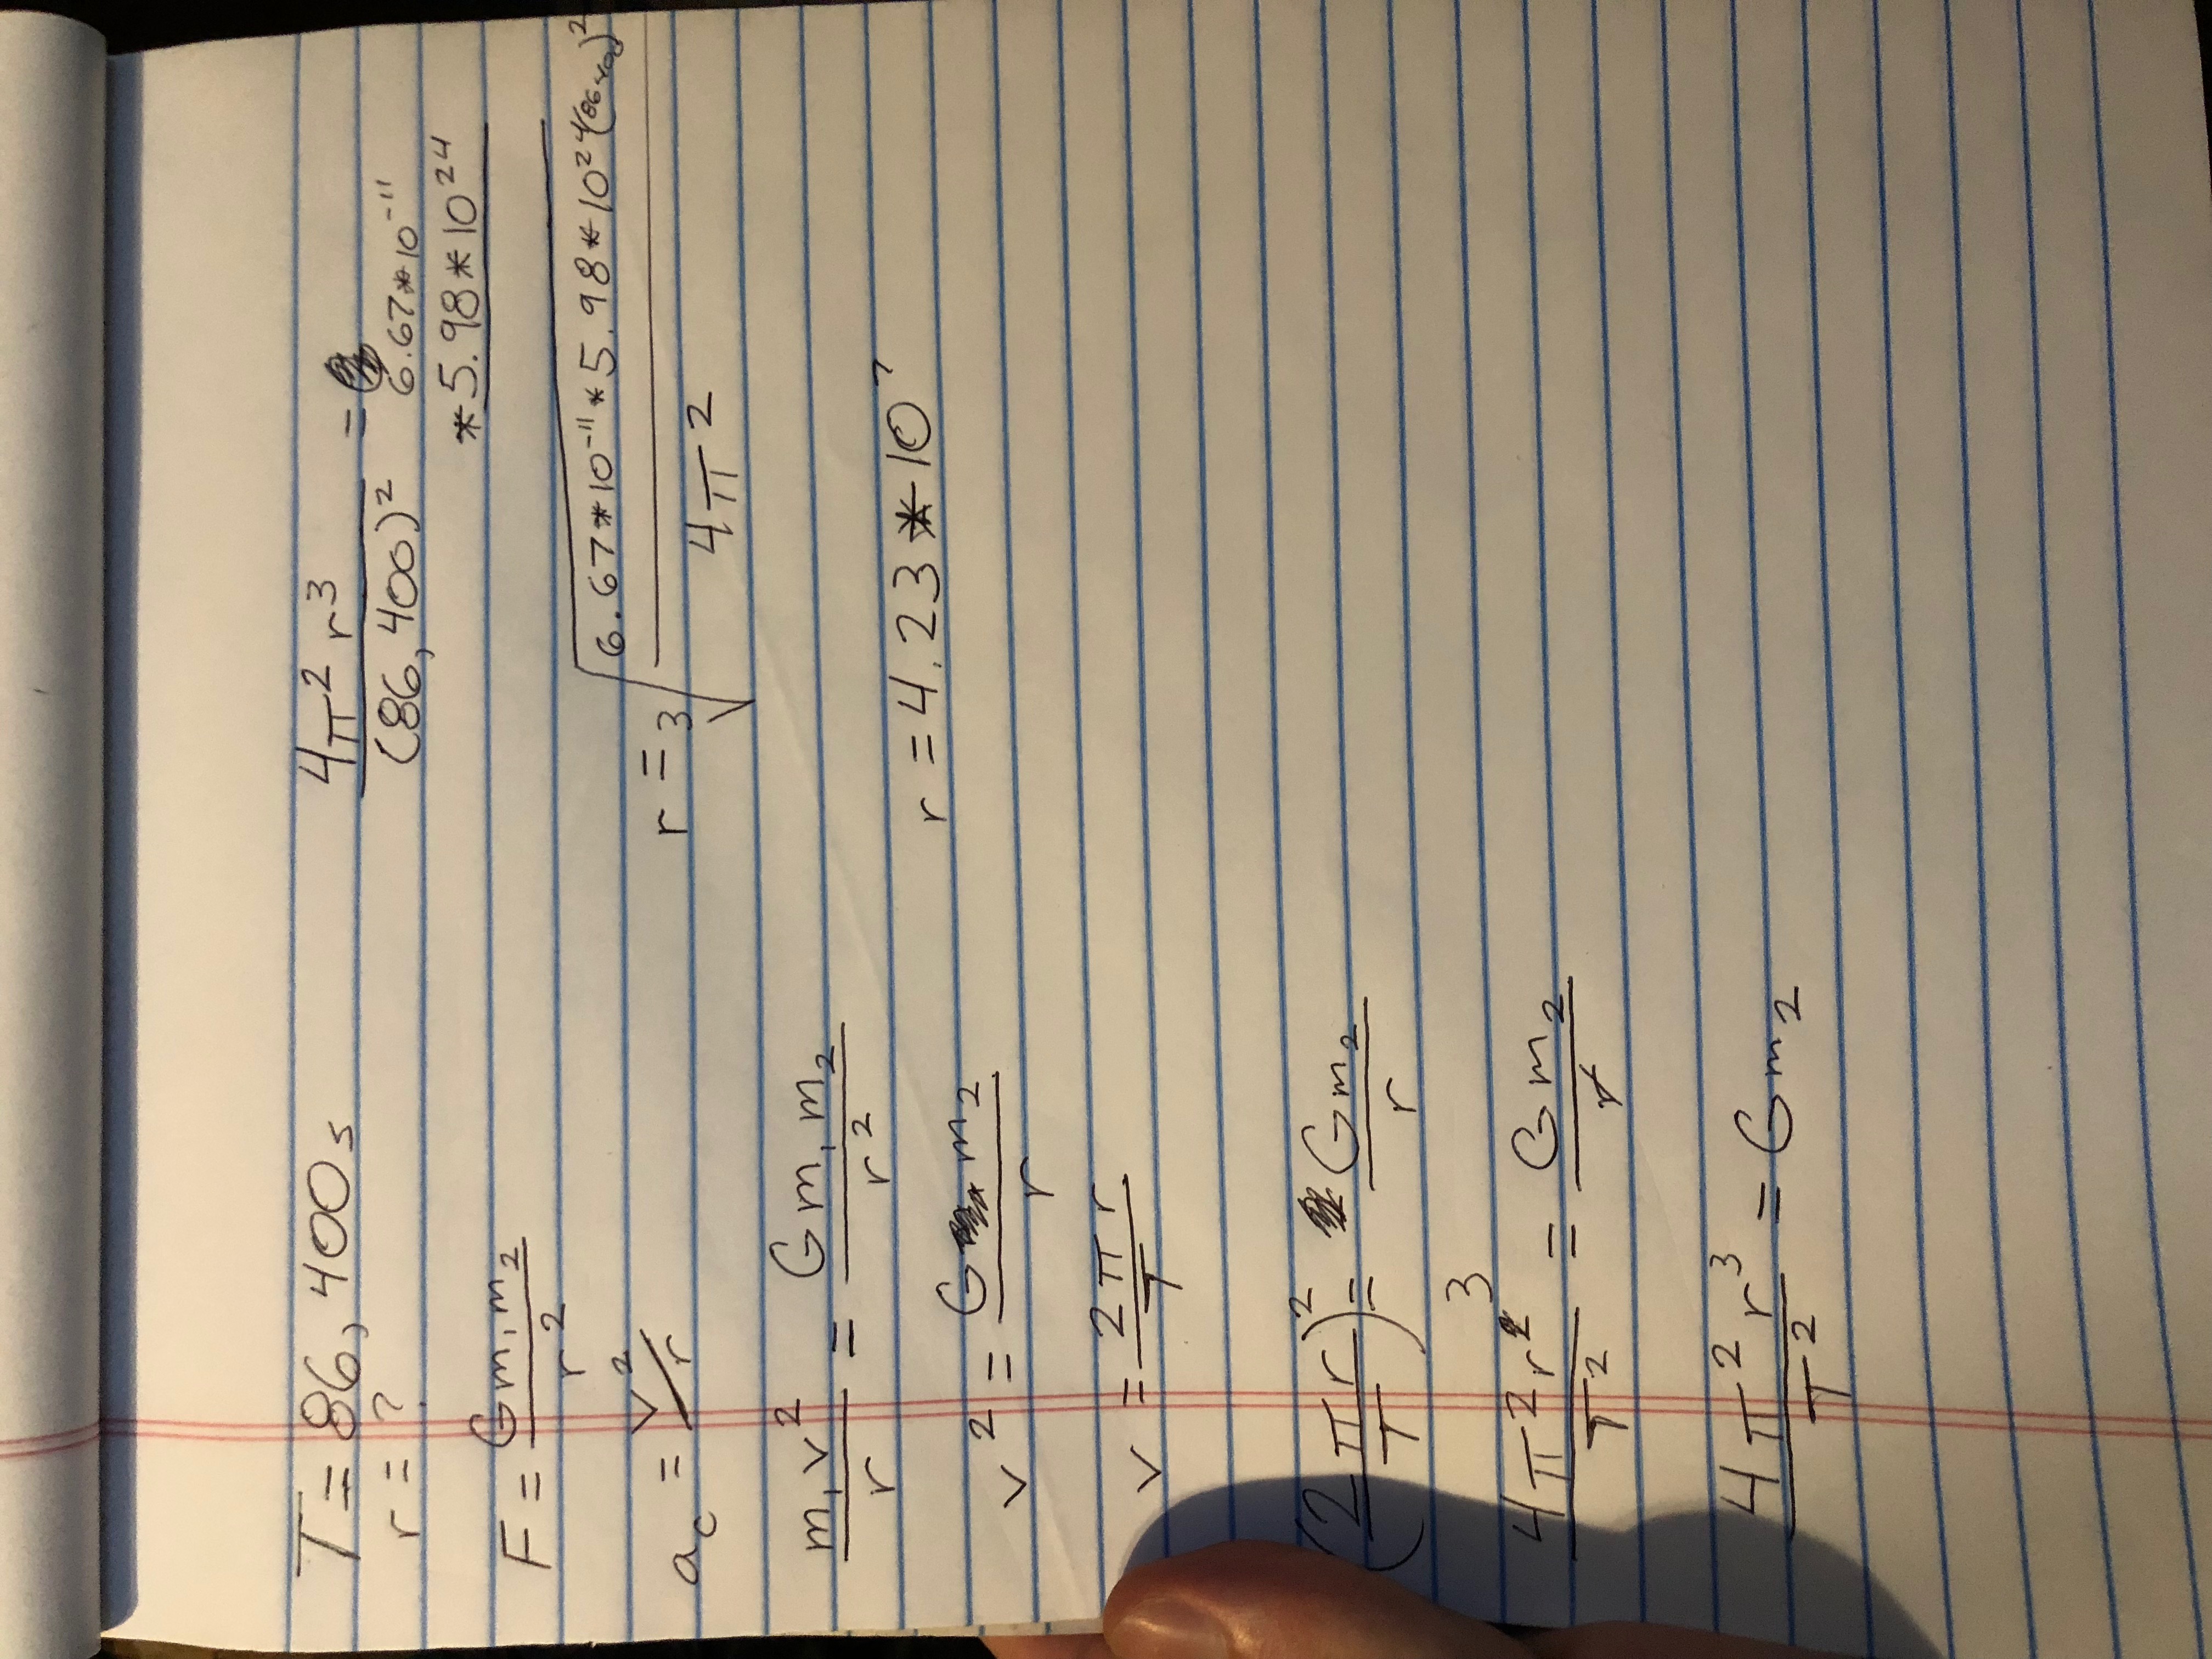 T = 86,400 s
r = ?
F = Gm₁m₂ / r²
a_c = v²/r
m₁v² / r = Gm₁m₂ / r²
v² = G m₂ / r
v = 2πr / T
(2πr / T)² = Gm₂ / r
4π²r³ / T² = Gm₂ / r
4π²r³ / T² = Gm₂
4π² r³ / (86,400)² = 6.67*10⁻¹¹
*5.98*10²⁴
r = ³√(6.67*10⁻¹¹*5.98*10²⁴(86400)² / 4π²)
r = 4.23*10⁷